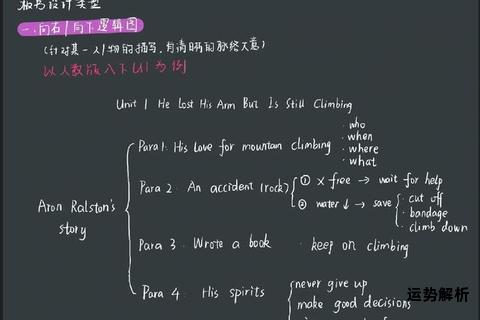 板书设计类型
一、向右/向下逻辑图
(针对某一人/物的描写,有清晰的脉络大意)
以人教版八下U1为例
Unit 1 He Lost His Arm But Is Still Climbing
Aron Ralston's story
Para 1. His love for mountain climbing
· who
· when
· where
· what
Para 2. An accident (rock)
① × free → wait for help
② water ↓ → save
· cut off
· bandage
· climb down
Para 3 Wrote a book · keep on climbing
Para 4. His spirits
never give up
make good decisions
运势解析